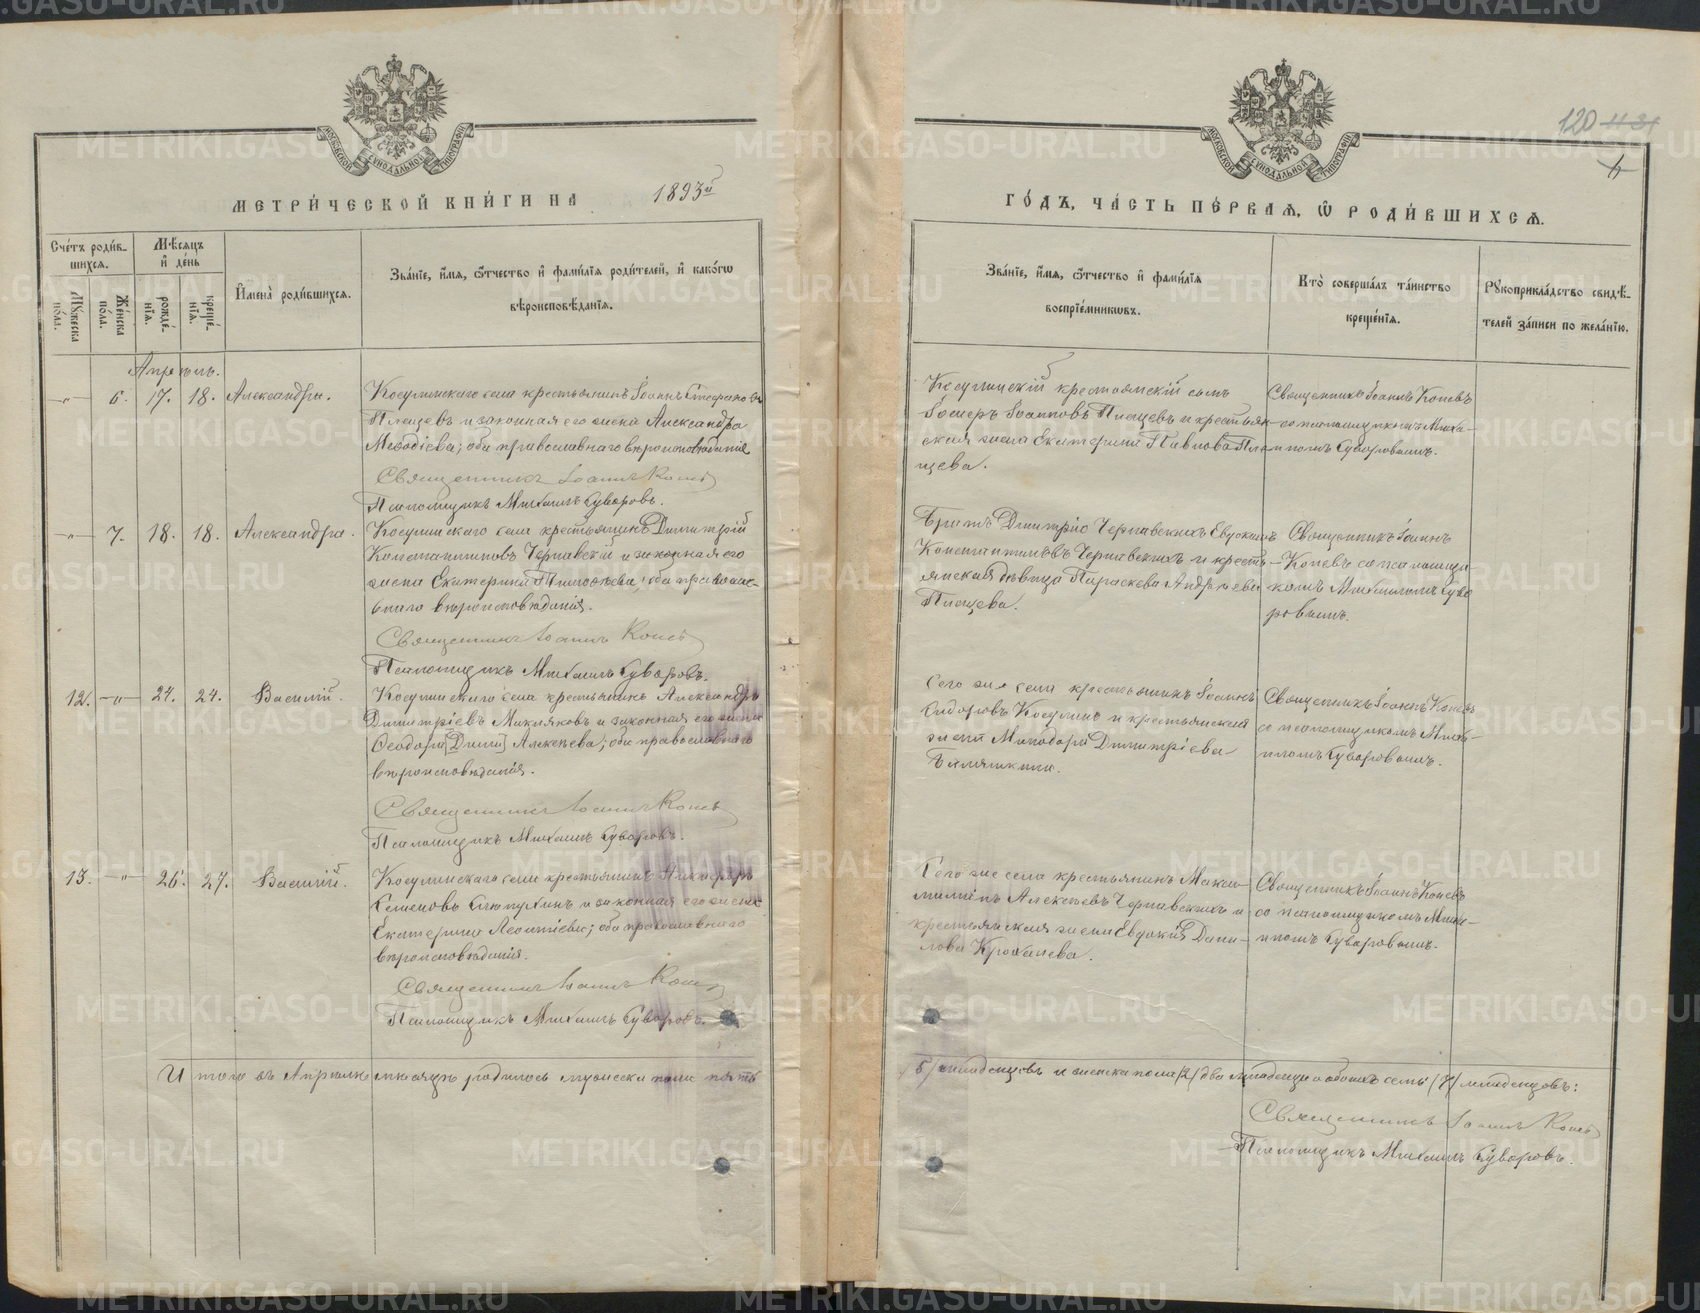 МЕТРИ́ЧЕСКОЙ КНИ́ГИ НА 1893й
Сче́тъ роди́в-
шихся.
Мѣсяцъ
и де́нь
Имена̀ роди́вшихся.
Зва́нїе, и́мя, ѻ́тчество и фами́лїя роди́телей, и како́гѡ
вѣроисповѣ́данїя.
Мꙋжеска
по́ла.
Же́нска
по́ла.
рожде́-
нїя.
креще́-
нїя.
Апрѣль.
-"- 6. 17. 18. Александра.
Косулинскаго села крестьянинъ Іоаннъ Стефановъ
Плещевъ и законная его жена Александра
Меѳодіева; оба православнаго вѣроисповѣданія
Священникъ Іоаннъ Коневъ
Псаломщикъ Михаилъ Суворовъ.
-"- 7. 18. 18. Александра.
Косулинскаго села крестьянинъ Димитрій
Константиновъ Чернавскій и законная его
жена Екатерина Тимоѳеева; оба православ-
наго вѣроисповѣданія.
Священникъ Іоаннъ Коневъ
Псаломщикъ Михаилъ Суворовъ.
12. -"- 24. 24. Василій.
Косулинскаго села крестьянинъ Александръ
Димитріевъ Макляковъ и законная его жена
Ѳеодора Алексѣева; оба православнаго
вѣроисповѣданія.
Священникъ Іоаннъ Коневъ
Псаломщикъ Михаилъ Суворовъ.
13. -"- 26. 27. Василій.
Косулинскаго села крестьянинъ
Семеновъ и законная его жена
Екатерина Леонтіева; оба православнаго
вѣроисповѣданія.
Священникъ Іоаннъ Коневъ
Псаломщикъ Михаилъ Суворовъ.
Итого въ Апрѣлѣ мѣсяцѣ родилось мужеска пола пять
120
ГО́ДЪ, ЧА́СТЬ ПЕ́РВАЯ, Ѡ РОДИ́ВШИХСЯ.
Зва́нїе, и́мя, ѻ́тчество и фами́лїя
воспрїе́мникѡвъ.
Кто̀ соверша́лъ та́инство
креще́нїя.
Рꙋкоприкла́дство свидѣ́-
телей за́писи по жела́нїю.
Косулинскій крестьянскій сынъ
Іоанновъ Плещевъ и крестьян-
ская жена Екатерина Павлова Пле-
щева.
Священникъ Іоаннъ Коневъ
со псаломщикомъ Миха-
иломъ Суворовымъ.
Братъ Димитрія Чернавскихъ Евдокимъ
Константиновъ Чернавскихъ и кресть-
янская дѣвица Параскева Андреева
Плещева.
Священникъ Іоаннъ
Коневъ со псаломщи-
комъ Михаиломъ Суво-
ровымъ.
Сего же села крестьянинъ Іоаннъ
Сидоровъ Косулинъ и крестьянская
жена Димитріева
Священникъ Іоаннъ Коневъ
со псаломщикомъ Миха-
иломъ Суворовымъ.
Сего же села крестьянинъ Макси-
миліанъ Алексѣевъ Чернавскихъ и
крестьянская жена Евдокія Дани-
лова Крохалева.
Священникъ Іоаннъ Коневъ
со псаломщикомъ Миха-
иломъ Суворовымъ.
(5) младенцевъ и женска пола (2) два младенца а обоихъ семь (7) младенцовъ:
Священникъ Іоаннъ Коневъ
Псаломщикъ Михаилъ Суворовъ.
METRIKI.GASO-URAL.RU